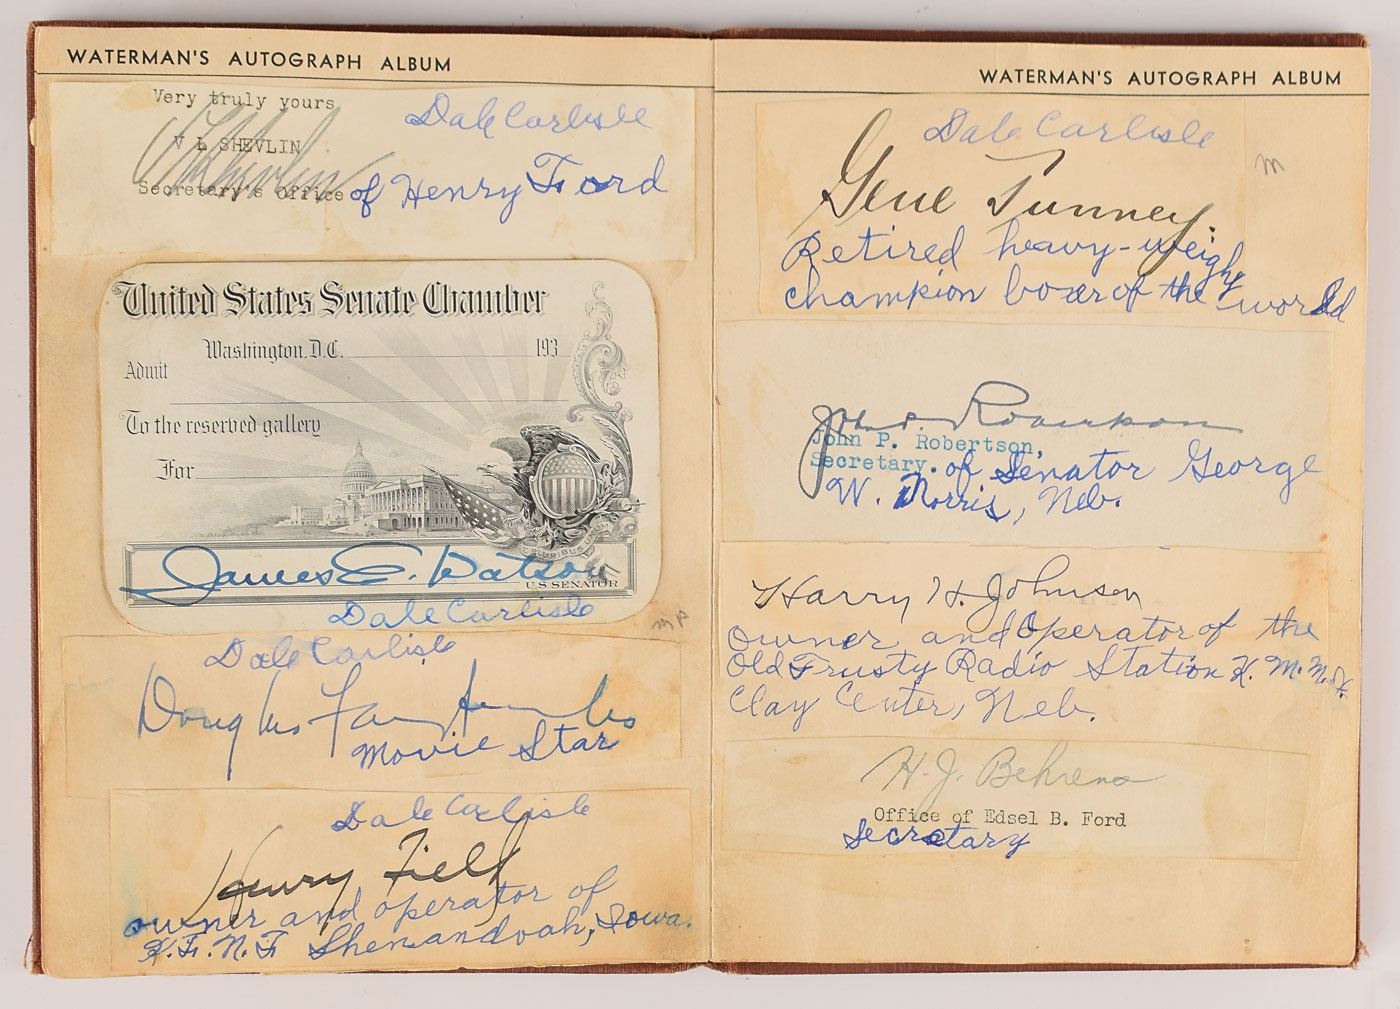 WATERMAN'S AUTOGRAPH ALBUM
Very truly yours
Dale Carlisle
V L SHEVLIN
Secretary's Office of Henry Ford
United States Senate Chamber
Washington, D.C. 193
Admit
To the reserved gallery
For
E PLURIBUS UNUM
James E. Watson
U.S. SENATOR
Dale Carlisle
MP
Dale Carlisle
Douglas Fairbanks
Movie Star
Dale Carlisle
Henry Field
owner and operator of
K.F.N.F Shenandoah, Iowa.
WATERMAN'S AUTOGRAPH ALBUM
Dale Carlisle
M
Gene Tunney
Retired heavy-weight
champion boxer of the world
John P. Robertson
John P. Robertson,
Secretary. of Senator George
W. Norris, Neb.
Harry H. Johnson
owner and operator of the
Old Trusty Radio Station K.M.M.J.
Clay Center, Neb.
H.J. Behrens
Office of Edsel B. Ford
Secretary